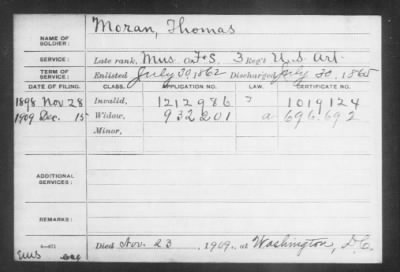 Moran, Thomas
NAME OF
SOLDIER:
SERVICE: Late rank, Mus. a F+S. 3 Reg't U.S. Art.
TERM OF
SERVICE: Enlisted July 30, 1862 Discharged July 30, 1865
DATE OF FILING. CLASS. APPLICATION NO. LAW. CERTIFICATE NO.
1898 Nov 28 Invalid, 1212986 1019124
1909 Dec. 15 Widow, 932201 a 696.692
Minor,
ADDITIONAL
SERVICES:
REMARKS:
Died Nov. 23, 1909, at Washington, D.C.